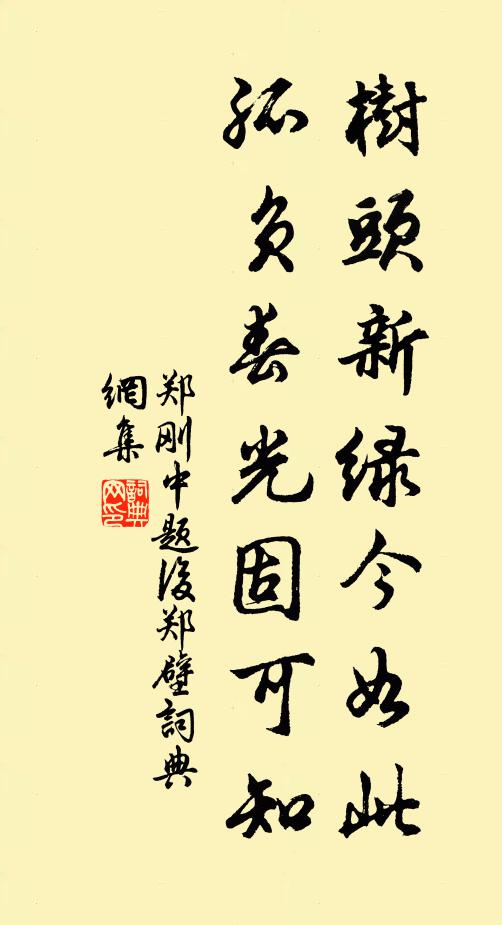 樹頭新緑今如此
孤负春光固可知
郑刚中题後郑壁詞典
網集
詞典网印